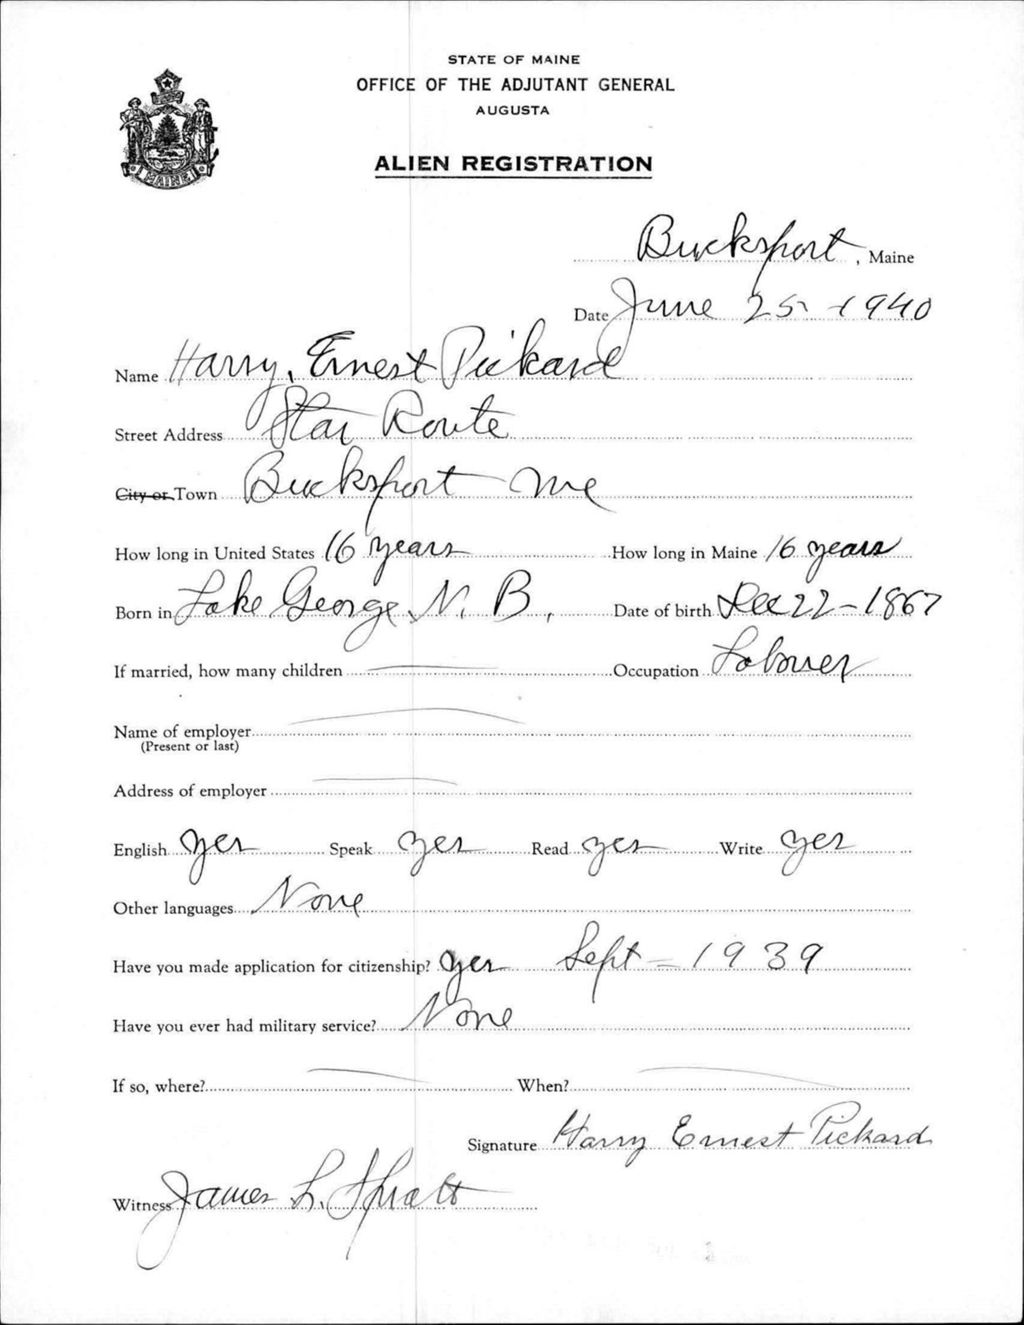 STATE OF MAINE
OFFICE OF THE ADJUTANT GENERAL
AUGUSTA
ALIEN REGISTRATION
MAINE
Bucksport, Maine
Date June 25 - 1940
Name Harry, Ernest Pickard
Street Address Star Route
City or Town Bucksport Me
How long in United States 16 years How long in Maine 16 years
Born in Lake George, N. B. Date of birth Dec 22 - 1867
If married, how many children Occupation Labourer
Name of employer
(Present or last)
Address of employer
English yes Speak yes Read yes Write yes
Other languages None
Have you made application for citizenship? yes Sept - 1939
Have you ever had military service? None
If so, where? When?
Signature Harry Ernest Pickard
Witness James L. Spratt